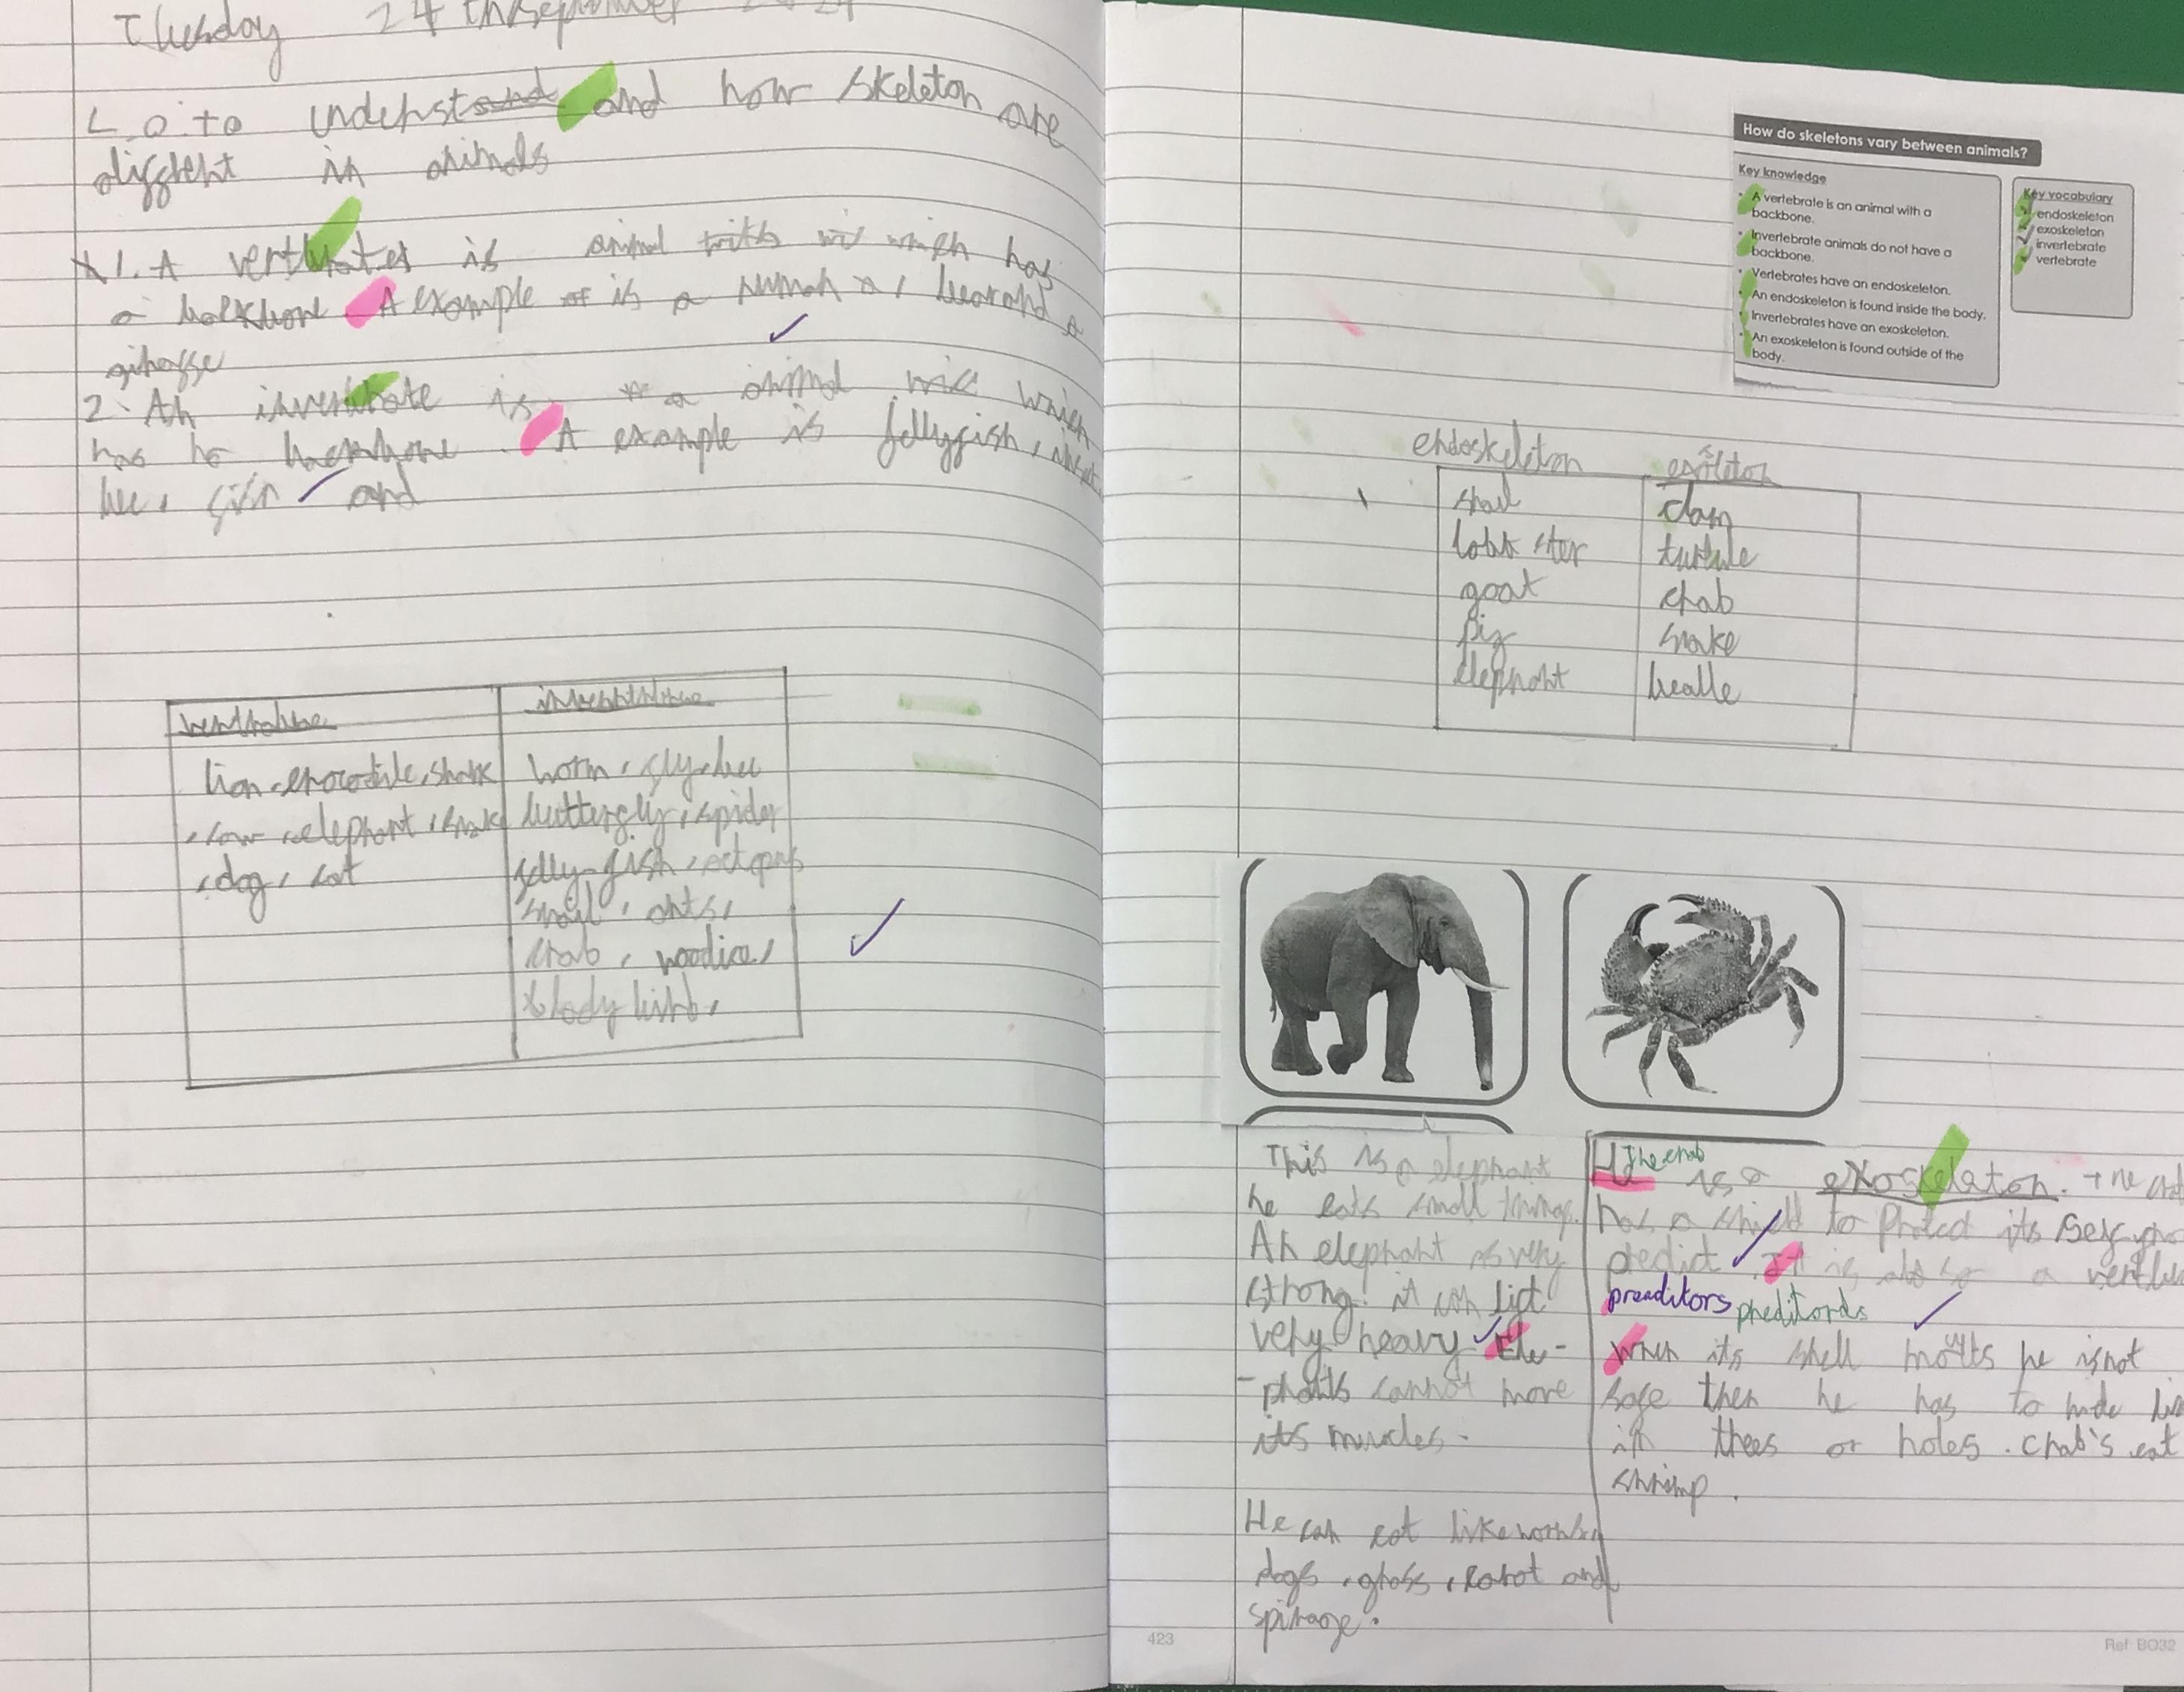 Tuesday 24 th September 2024
L.O: to understand and how skeleton are
different in animals
1. A vertbrates is animal with wi which has
a backbone A example of is a human a, bear and a
giraffe
2. An invertbrate is a animal wic which
has no backbone. A example is jellyfish,
bee, fish and
vertbrabe
invertbrabe
lion, crocodile, shark
, cow, elephant, snake
, dog, cat
worm, fly, bee
butterfly, spider
jelly-fish, octopus
snail, ants,
crab, woodice,
lady birb,
How do skeletons vary between animals?
Key knowledge
• A vertebrate is an animal with a
backbone.
• Invertebrate animals do not have a
backbone.
• Vertebrates have an endoskeleton.
• An endoskeleton is found inside the body.
• Invertebrates have an exoskeleton.
• An exoskeleton is found outside of the
body.
Key vocabulary
endoskeleton
exoskeleton
invertebrate
vertebrate
endoskeleton
snail
lobb ster
goat
pig
elephant
clam
turtule
crab
snake
bealle
This is a elephant
he eats small things.
An elephant is very
strong! it can lift
very heavy Ele-
-phants cannot more
its muscles.
He can eat like
dogs, grass, and
spinage.
The crab
is a exoskelaton. The
has a shield to protect its self
predict. It is also a
preaditors preditords
When its shell moults he is not
safe then he has to hide
in trees or holes. Crab's eat
shrimp.
423
Ref: BO32